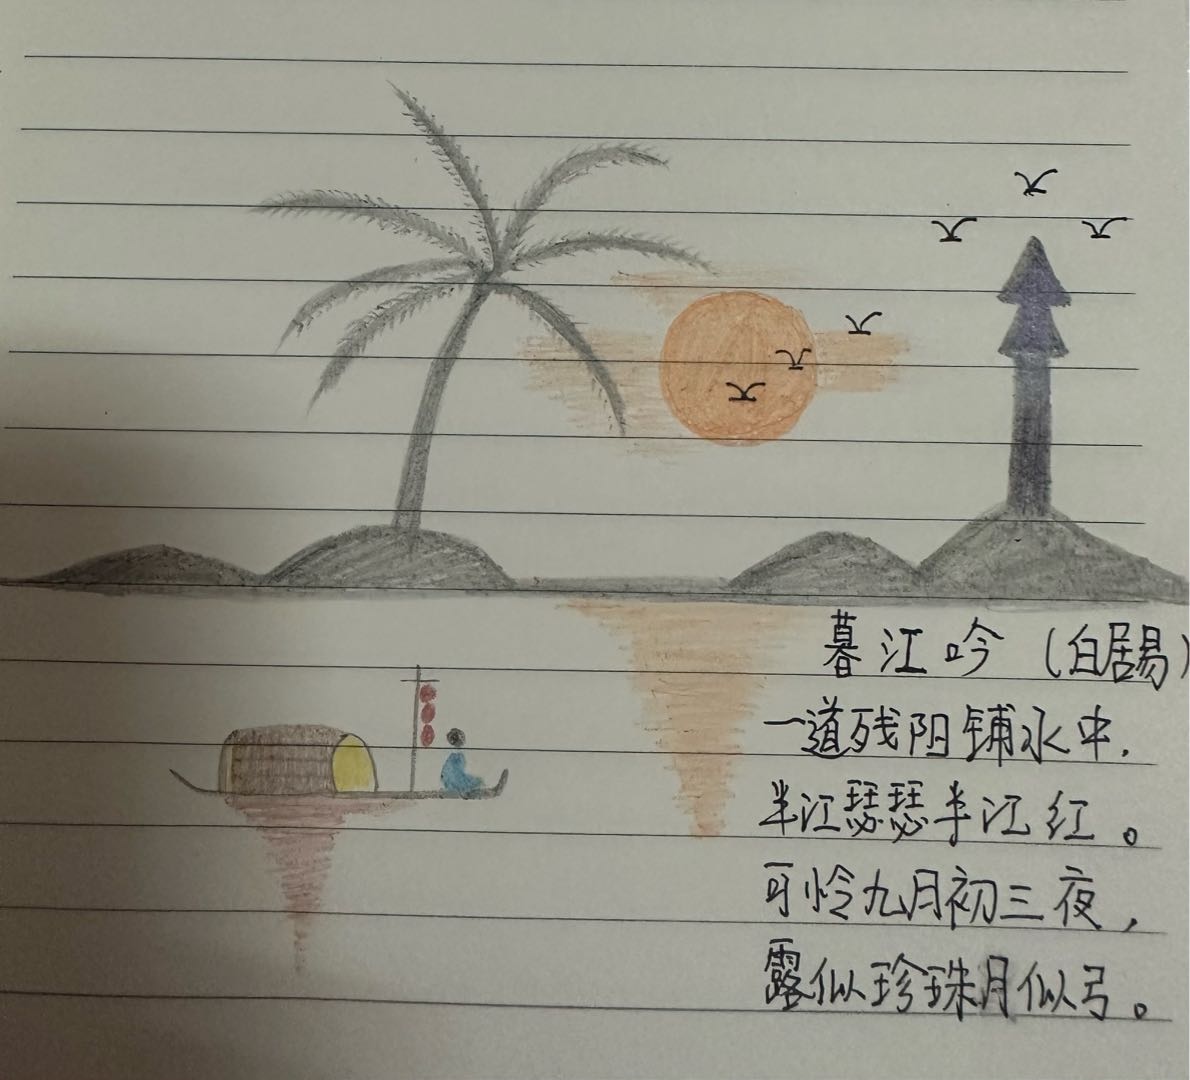 暮江吟（白居易）
一道残阳铺水中，
半江瑟瑟半江红。
可怜九月初三夜，
露似珍珠月似弓。